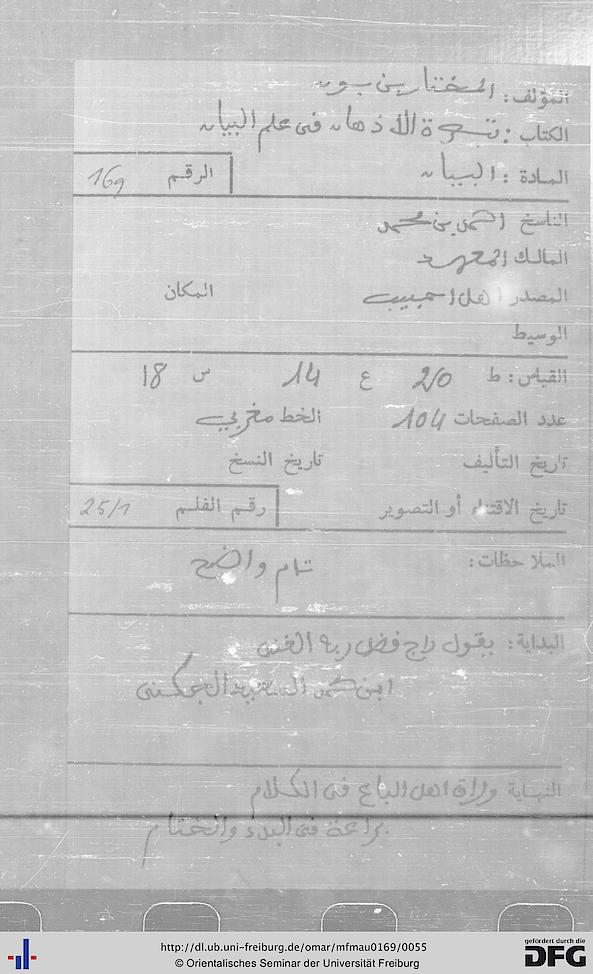 المؤلف: المختار بن بون
الكتاب: تبصرة الأذهان في علم البيان
المادة: البيان
الرقم 169
الناسخ احمد بن محمد
المالك المعهد
المصدر اهل احبيب المكان
الوسيط
القياس: ط 20 ع 14 س 18
عدد الصفحات 104 الخط مغربي
تاريخ التأليف تاريخ النسخ
تاريخ الاقتناء أو التصوير
رقم الفلم 25/1
الملاحظات: تام واضح
البداية: يقول راج فضل ربه الغني
ابن السعيد الجكني
النهاية اهل الباع في الكلام
براعة في البدء والختام
http://dl.ub.uni-freiburg.de/omar/mfmau0169/0055
© Orientalisches Seminar der Universität Freiburg
gefördert durch die
DFG